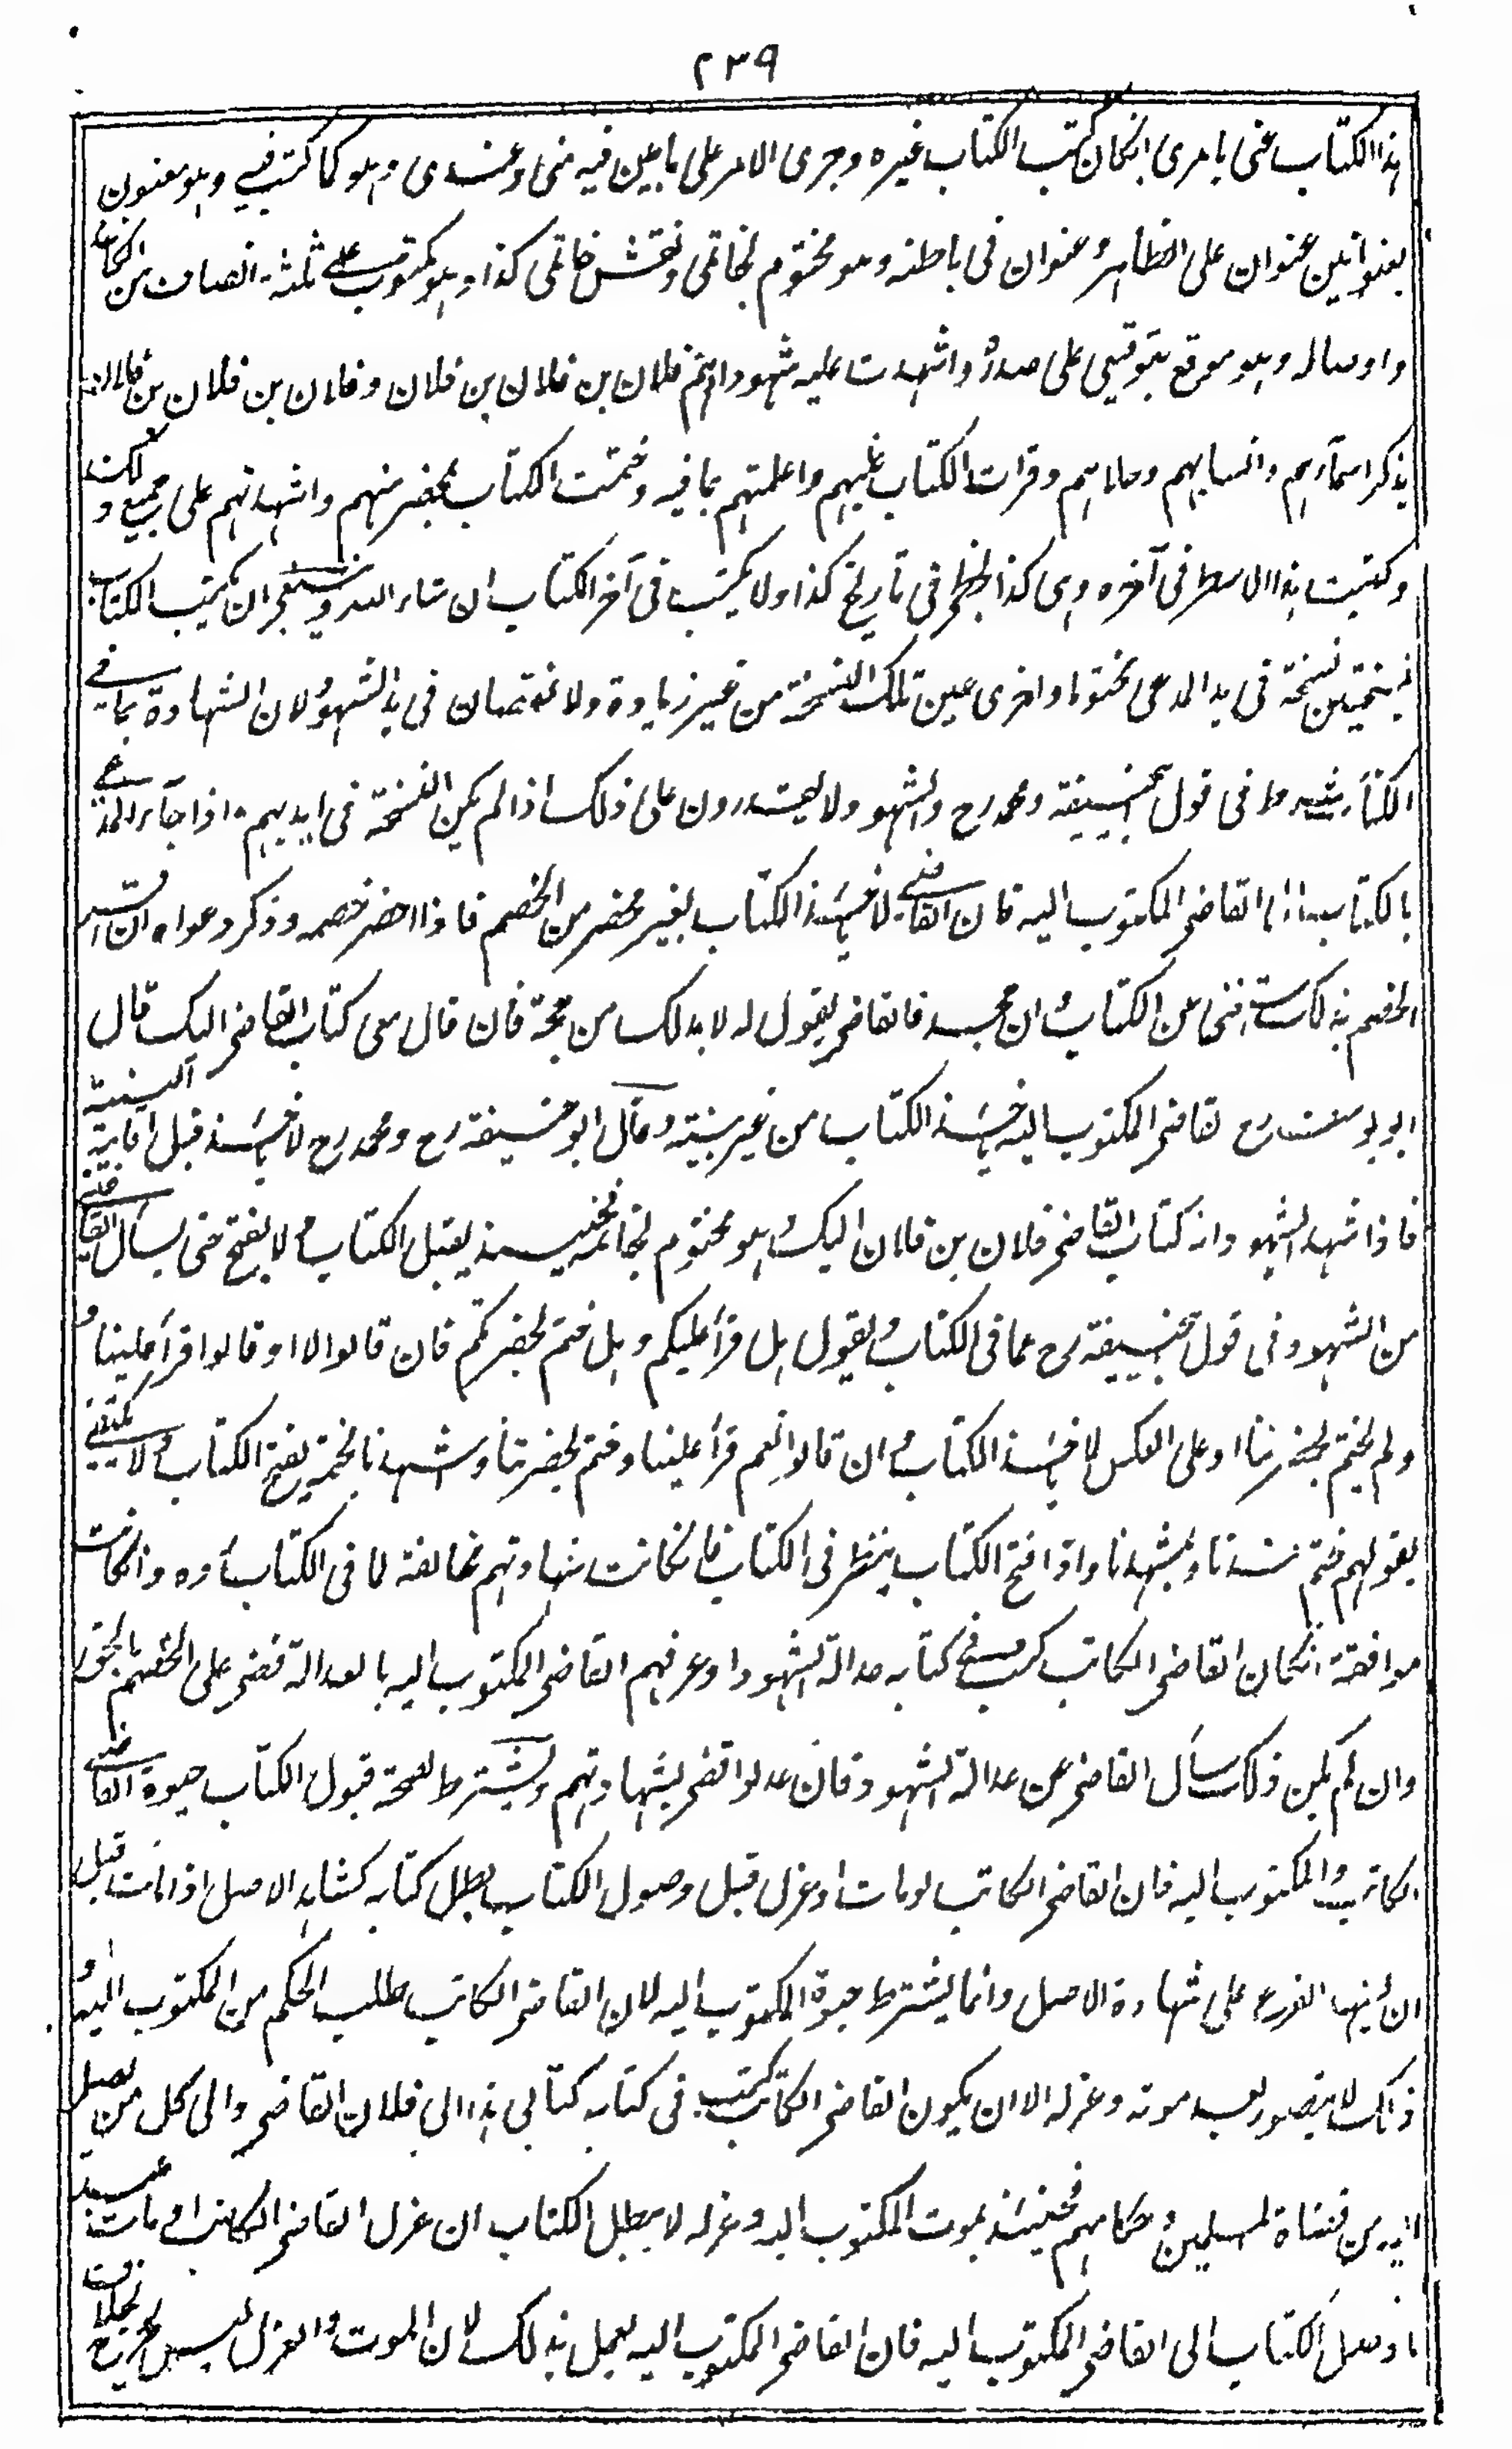 ٢٣٩
هذا الكتاب عنى بامرى انكان كتب الكتاب غيره وجرى الامر على ما بين فيه منى وعندى وهو كما كتب فيه وهو معنون
بعنوانين عنوان على الظاهر وعنوان فى باطنه وهو مختوم بخاتمى ونقش خاتمى كذا وهو مكتوب على ثلثة انصاف من الكاغذ
واوصاله وهو موقع بتوقيعى على صدره واشهدت عليه شهودا وهم فلان بن فلان بن فلان وفلان بن فلان بن فلان
يذكر اسمآءهم وانسابهم وحلاهم وقرات الكتاب عليهم واعلمتهم بما فيه وختمت الكتاب بمحضر منهم واشهدتهم على جميع ذلك
وكتبت هذا الاسطر فى آخره وهى كذا بخطى فى تاريخ كذا ولا يكتب فى آخر الكتاب ان شاء الله وينبغى ان يكتب الكتاب
نسختين نسخة فى يد المدعى مختوما واخرى عين تلك النسخة من غير زيادة ولا نقصان فى يد الشهود لان الشهادة بما فى
الكتاب شرط فى قول ابيحنيفة ومحمد رح والشهود لا يقدرون على ذلك اذا لم يكن النسخة فى ايديهم واذا جآء المدعى
بالكتاب الى القاضى المكتوب اليه فان القاضى لا ياخذ الكتاب بغير محضر من الخصم فاذا احضر خصمه وذكر دعواه ان اقر
الخصم بذلك استغنى عن الكتاب وان جحد فالقاضى يقول له لابد لك من حجة فان قال معى كتاب القاضى اليك قال
ابو يوسف رح القاضى المكتوب اليه ياخذ الكتاب من غير بينة وقال ابو حنيفة رح ومحمد رح لا ياخذ قبل اقامة البينة
فاذا شهد الشهود انه كتاب القاضى فلان بن فلان اليك وهو مختوم بخاتمه فحينئذ يقبل الكتاب ولا يفتح حتى يسأل القاضى
من الشهود فى قول ابيحنيفة رح عما فى الكتاب ويقول هل قرأ عليكم وهل ختم بحضرتكم فان قالوا لا او قالوا قرأ علينا و
ولم يختم بحضرتنا او على العكس لا ياخذ الكتاب وان قالوا نعم قرأ علينا وختم بحضرتنا وشهدنا بختمه يفتح الكتاب ولا يكتفى
بقولهم ختم عندنا واشهدنا واذا فتح الكتاب ينظر فى الكتاب فانكانت شهادتهم مخالفة لما فى الكتاب رده وانكانت
موافقة انكان القاضى الكاتب كتب فى كتابه عدالة الشهود او عرفهم القاضى المكتوب اليه بالعدالة قضى على الخصم بالحق
وان لم يكن ذلك سأل القاضى عن عدالة الشهود فان عدلوا قضى بشهادتهم ويشترط لصحة قبول الكتاب حيوة القاضى
الكاتب والمكتوب اليه فان القاضى الكاتب لو مات او عزل قبل وصول الكتاب بطل كتابه كشاهد الاصل اذا مات قبل
ان يشهد الفرع على شهادة الاصل وانما يشترط حيوة المكتوب اليه لان القاضى الكاتب طلب الحكم من المكتوب اليه و
ذلك لا يتصور بعد موته وعزله الا ان يكون القاضى الكاتب كتب فى كتابه كتابى هذا الى فلان القاضى والى كل من يصل
اليه من قضاة المسلمين وحكامهم فحينئذ بموت المكتوب اليه وعزله لا يبطل الكتاب ان عزل القاضى الكاتب او مات بعد
ما وصل الكتاب الى القاضى المكتوب اليه فان القاضى المكتوب اليه يعمل بذلك لان الموت والعزل ليس بجرح بخلاف